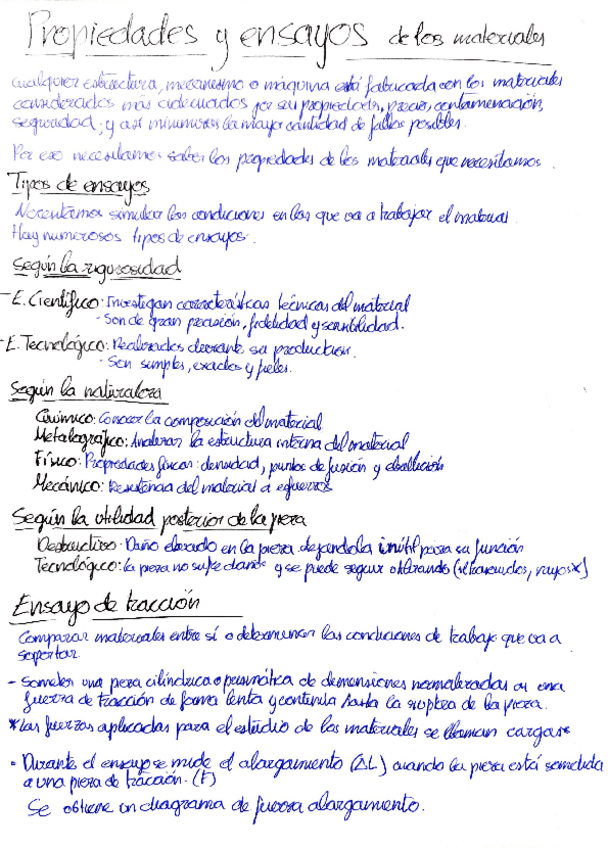 Propiedades y ensayos de los materiales
Cualquier estructura, mecanismo o máquina está fabricada con los materiales
considerados más adecuados por su propiedades, precio, contaminación,
seguridad; y así minimizar la mayor cantidad de fallos posibles.
Por eso necesitamos saber las propiedades de los materiales que necesitamos.
Tipos de ensayos
Necesitamos simular las condiciones en las que va a trabajar el material.
Hay numerosos tipos de ensayos.
Según la rigurosidad
- E. Científico: Investigan características técnicas del material
- Son de gran precisión, fidelidad y sensibilidad.
- E. Tecnológico: Realizados durante su production.
- Son simples, exactos y fieles.
Según la naturaleza
Químico: Conocer la composición del material
Metalográfico: Analizar la estructura interna del material
Físico: Propiedades físicas: densidad, puntos de fusión y ebullición
Mecánico: Resistencia del material a esfuerzos
Según la utilidad posterior de la pieza
Destructivo: Daño elevado en la pieza dejandola inútil para su función
Tecnológico: la pieza no sufre daños y se puede seguir utilizando (ultrasonidos, rayos X)
Ensayo de tracción
Comparar materiales entre sí o determinar las condiciones de trabajo que va a
soportar
- Someter una pieza cilíndrica o prismática de dimensiones normalizadas a una
fuerza de tracción de forma lenta y continua hasta la ruptura de la pieza.
* Las fuerzas aplicadas para el estudio de los materiales se llaman cargas*
• Durante el ensayo se mide el alargamiento (ΔL) cuando la pieza está sometida
a una pieza de tracción. (F)
Se obtiene un diagrama de fuerza alargamiento.